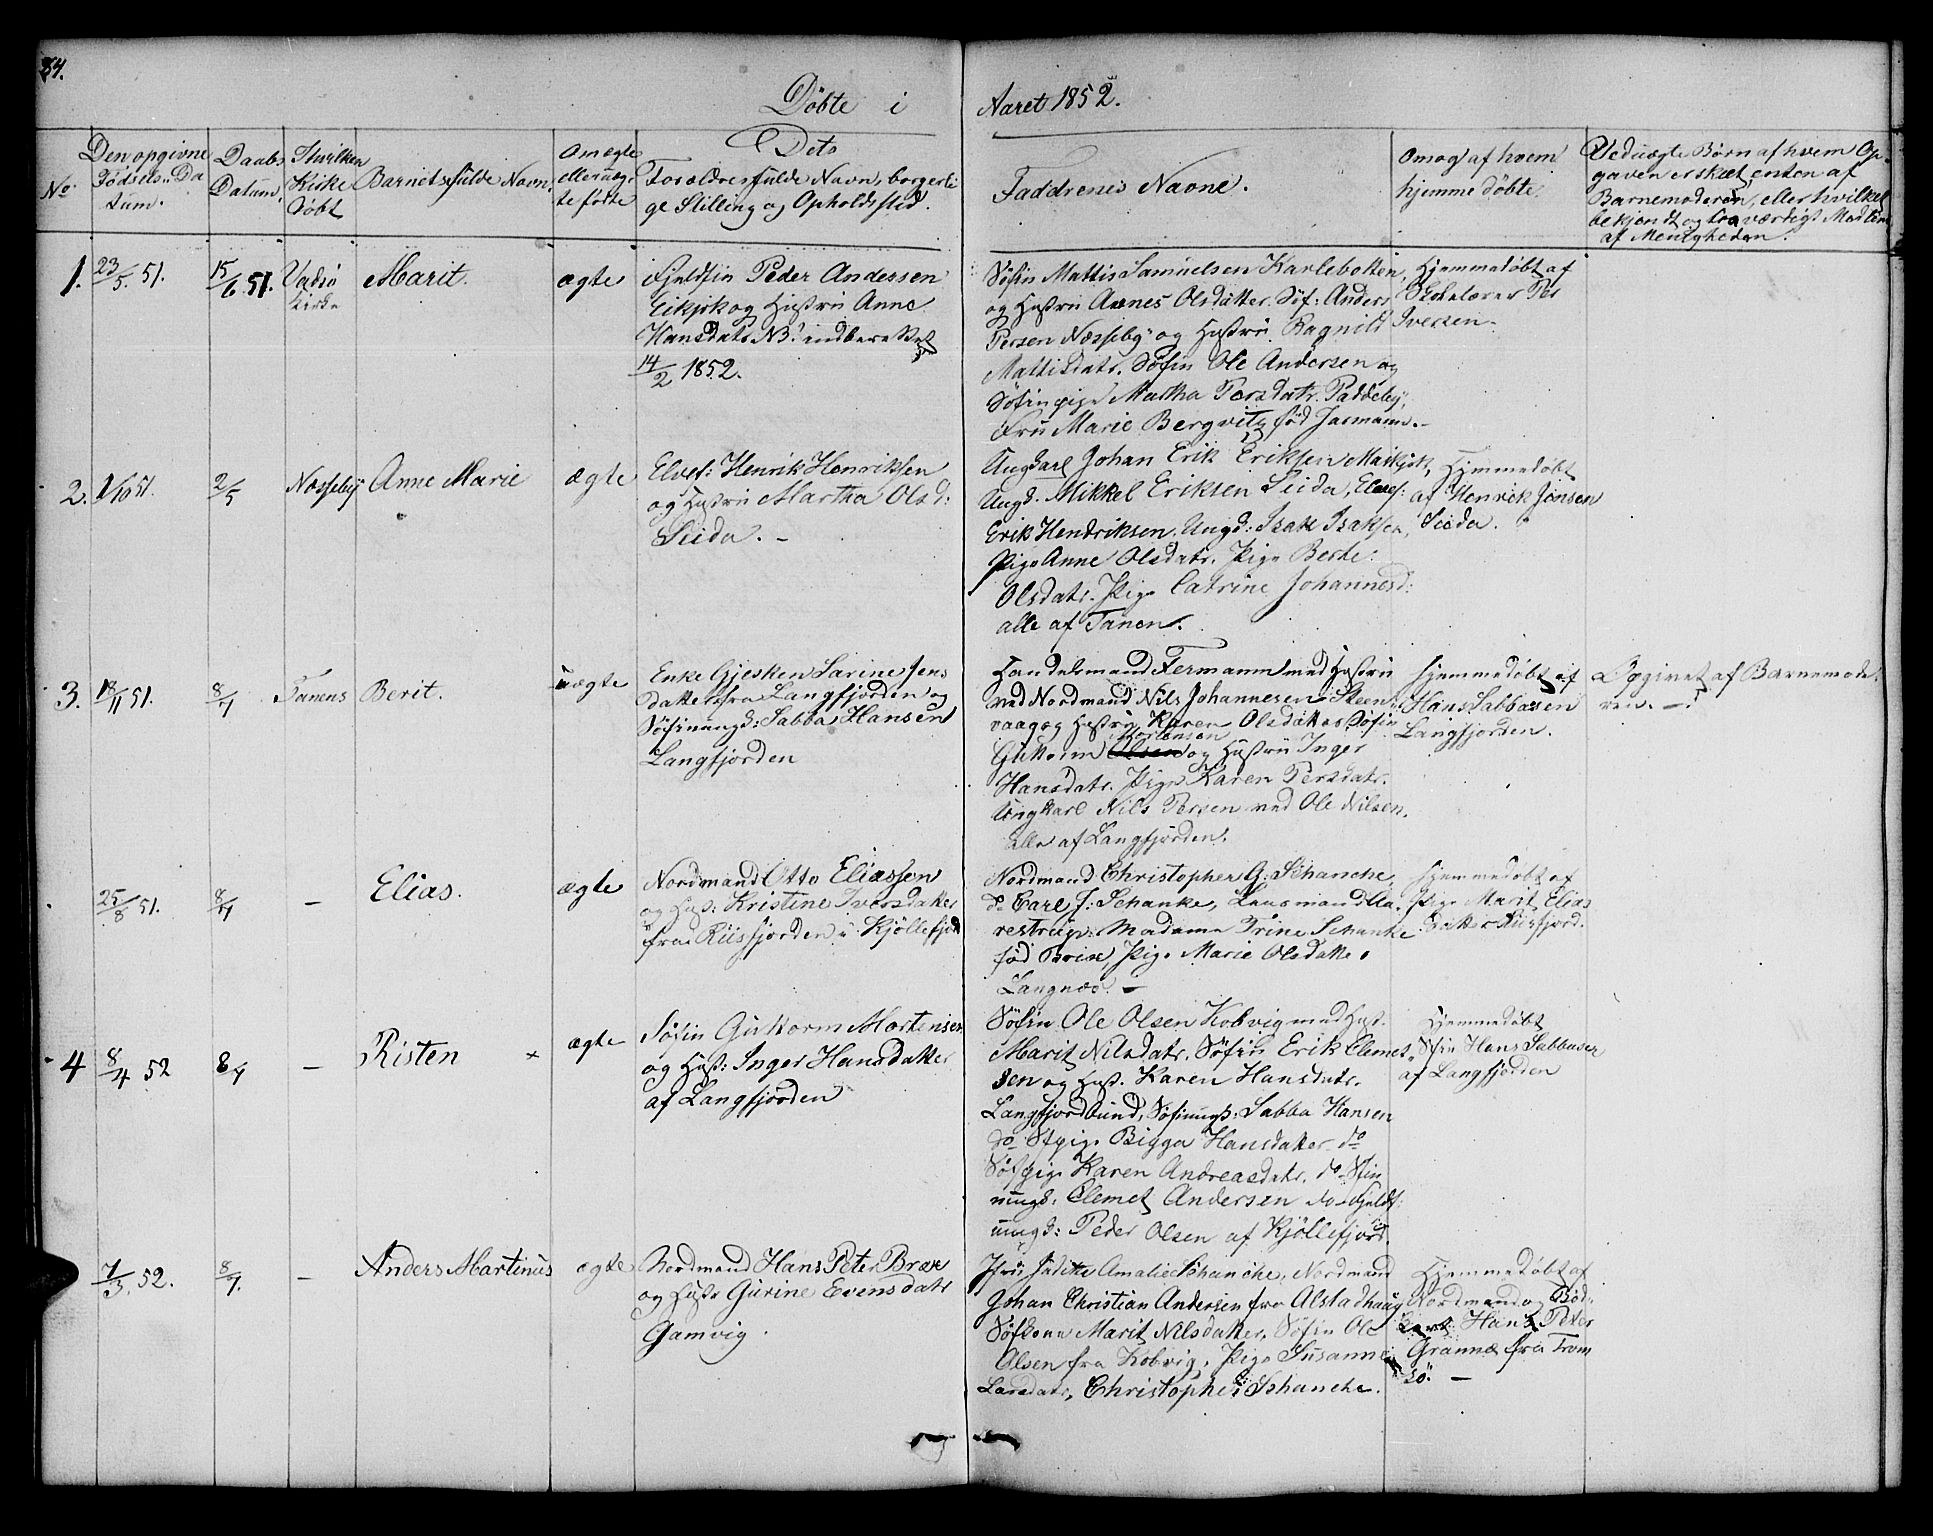 84.
Döbte i Aaret 1852.
No.
Den opgivne
Födsels Da
tum.
Daabs
Datum.
I hvilken
Kirke
Döbt
Barnets fulde Navn.
Om ægte
eller uæg-
te fødte
Dets
Forældres fulde Navn, borgerli
ge Stilling og Opholdssted.
Faddrenes Navne.
Om og af hvem
hjemme döbte.
Ved uægte Børn af hvem Op-
gaven er skeet, enten af
Barnemoderen, eller hvilket
bekjendt og troværdigt Medlem
af Menigheden.
1. 23/5 51. 15/6 51. Vadsö
Kirke
Marit.
ægte
Fjeldfin Peder Anderssen
og Hustru Anne
Hansdatr. NB! indberettet
14/2 1852.
Söfin Mattis Samuelsen Karlebotten
og Hustru Olsdatter. Söf: Anders
Persen Næsseby og Hustru Ragnild
Mattisdatr. Söfin Ole Andersen og
Söfinpige Martha Persdatr. Paddeby,
Fru Marie Bergvitz född Jarmann.-
Hjemmedöbt af
Skolelærer Per
Iversen-
2. 1/10 51. 2/5 Næsseby Anne Marie
ægte
Elvef: Henrik Henriksen
og Hustru Martha Olsd:
Seida. -
Ungkarl Johan Erik Eriksen Maskjok,
Ungd. Mikkel Eriksen Seida, Elvef:
Erik Hendriksen. Ungd: Isak Isaksen,
Pige Anne Olsdatr. Pige Berte
Olsdatr. Pige Catrine Johannesd:
alle af Tanen.
Hjemmedöbt
af Henrik Jonsen
Seida.
3. 18/11 51. 8/7 Tanens Berit.
uægte
Enke Gjesken Sarine Jens
datter fra Langfjorden og
Söfinungd: Sabba Hansen
Langfjorden
Handelsmand Fermann med Hustru
ved Nordmand Nils Johannesen Steen
vaag og Hustru Karen Olsdatter Söfin
Mortensen
Guttorm Olsen og Hustru Inger
Hansdatr. Pige Karen Persdatr.
Ungkarl Nils Persen ved Ole Nilsen.
alle af Langfjorden.
Hjemmedöbt af
Hans Sabbasen
Langfjorden.
Opgivet af Barnemode-
ren. -
25/8 51. 8/7 -
Elias.
ægte
Nordmand Otto Eliassen
og Hust: Kristine Iversdatter
fra Riisfjorden i Kjöllefjord
Nordmand Christopher G: Schanche,
do Carl J: Schanke, Lensmand Cla-
restrup. Madame Trine Schanke
född Brix, Pige Marie Olsdatter
Langnæs. -
Hjemmedöbt af
Pige Marit Elias
datter Riisfjord.
4 8/4 52 8/7 -
Risten
×
ægte
Söfin Guttorm Mortensen
og Hust: Inger Hansdatter
af Langfjorden
Söfin Ole Olsen Kobvig med Hust.
Marit Nilsdatr. Söfin Erik Clemet
sen og Hust. Karen Hansdatr.
Langfjordbund, Söfinungd: Sabba Hansen
do Sfpige Bigga Hansdatter do
Söfpige Karen Andreasdatr. do Sfin
ungd. Clemet Andersen do Fjeldf:
ungd: Peder Olsen af Kjöllefjord.
Hjemmedöbt
Sfin Hans Sabbasen
af Langfjorden
7/3 52. 8/7. -
Anders Martinus
ægte
Nordmand Hans Peter Bræk
og Hustr Gurine Evensdatr
Gamvig.
Fru Judithe Amalie Schanche, Nordmand
Johan Christian Andersen fra Alstadhaug
Söfkone Marit Nilsdatter. Söfin Ole
Olsen fra Kobvig, Pige Susanne
Larsdatr, Christopher Schanche.
Hjemmedöbt af
Nordmand og Bød-
Hans Peter
Grannæs fra Trom
sö. -